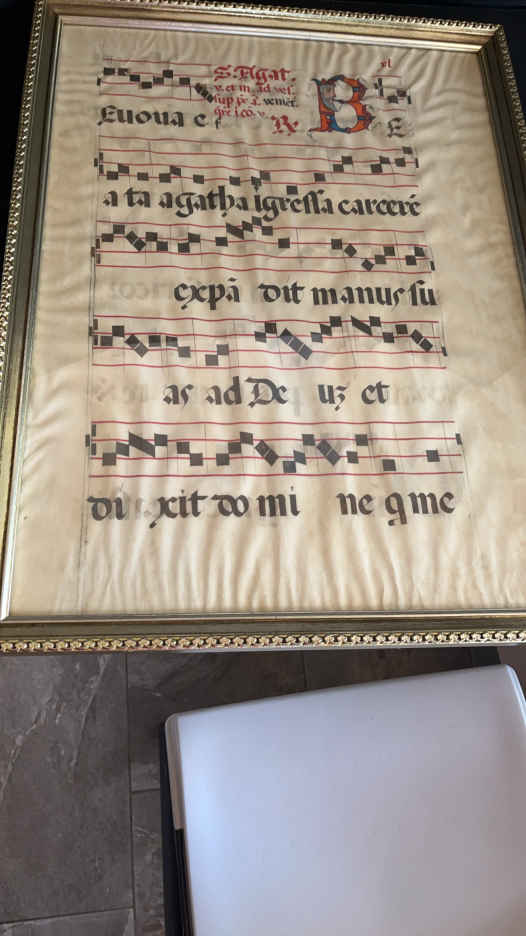 S. Agat.
v. et m. ad ves
sup ps. a.
Euoua e
R
B E
a ta agatha igressa carcerē
expā dit manus su
as ad De uʒ et
di xit do mi ne q me